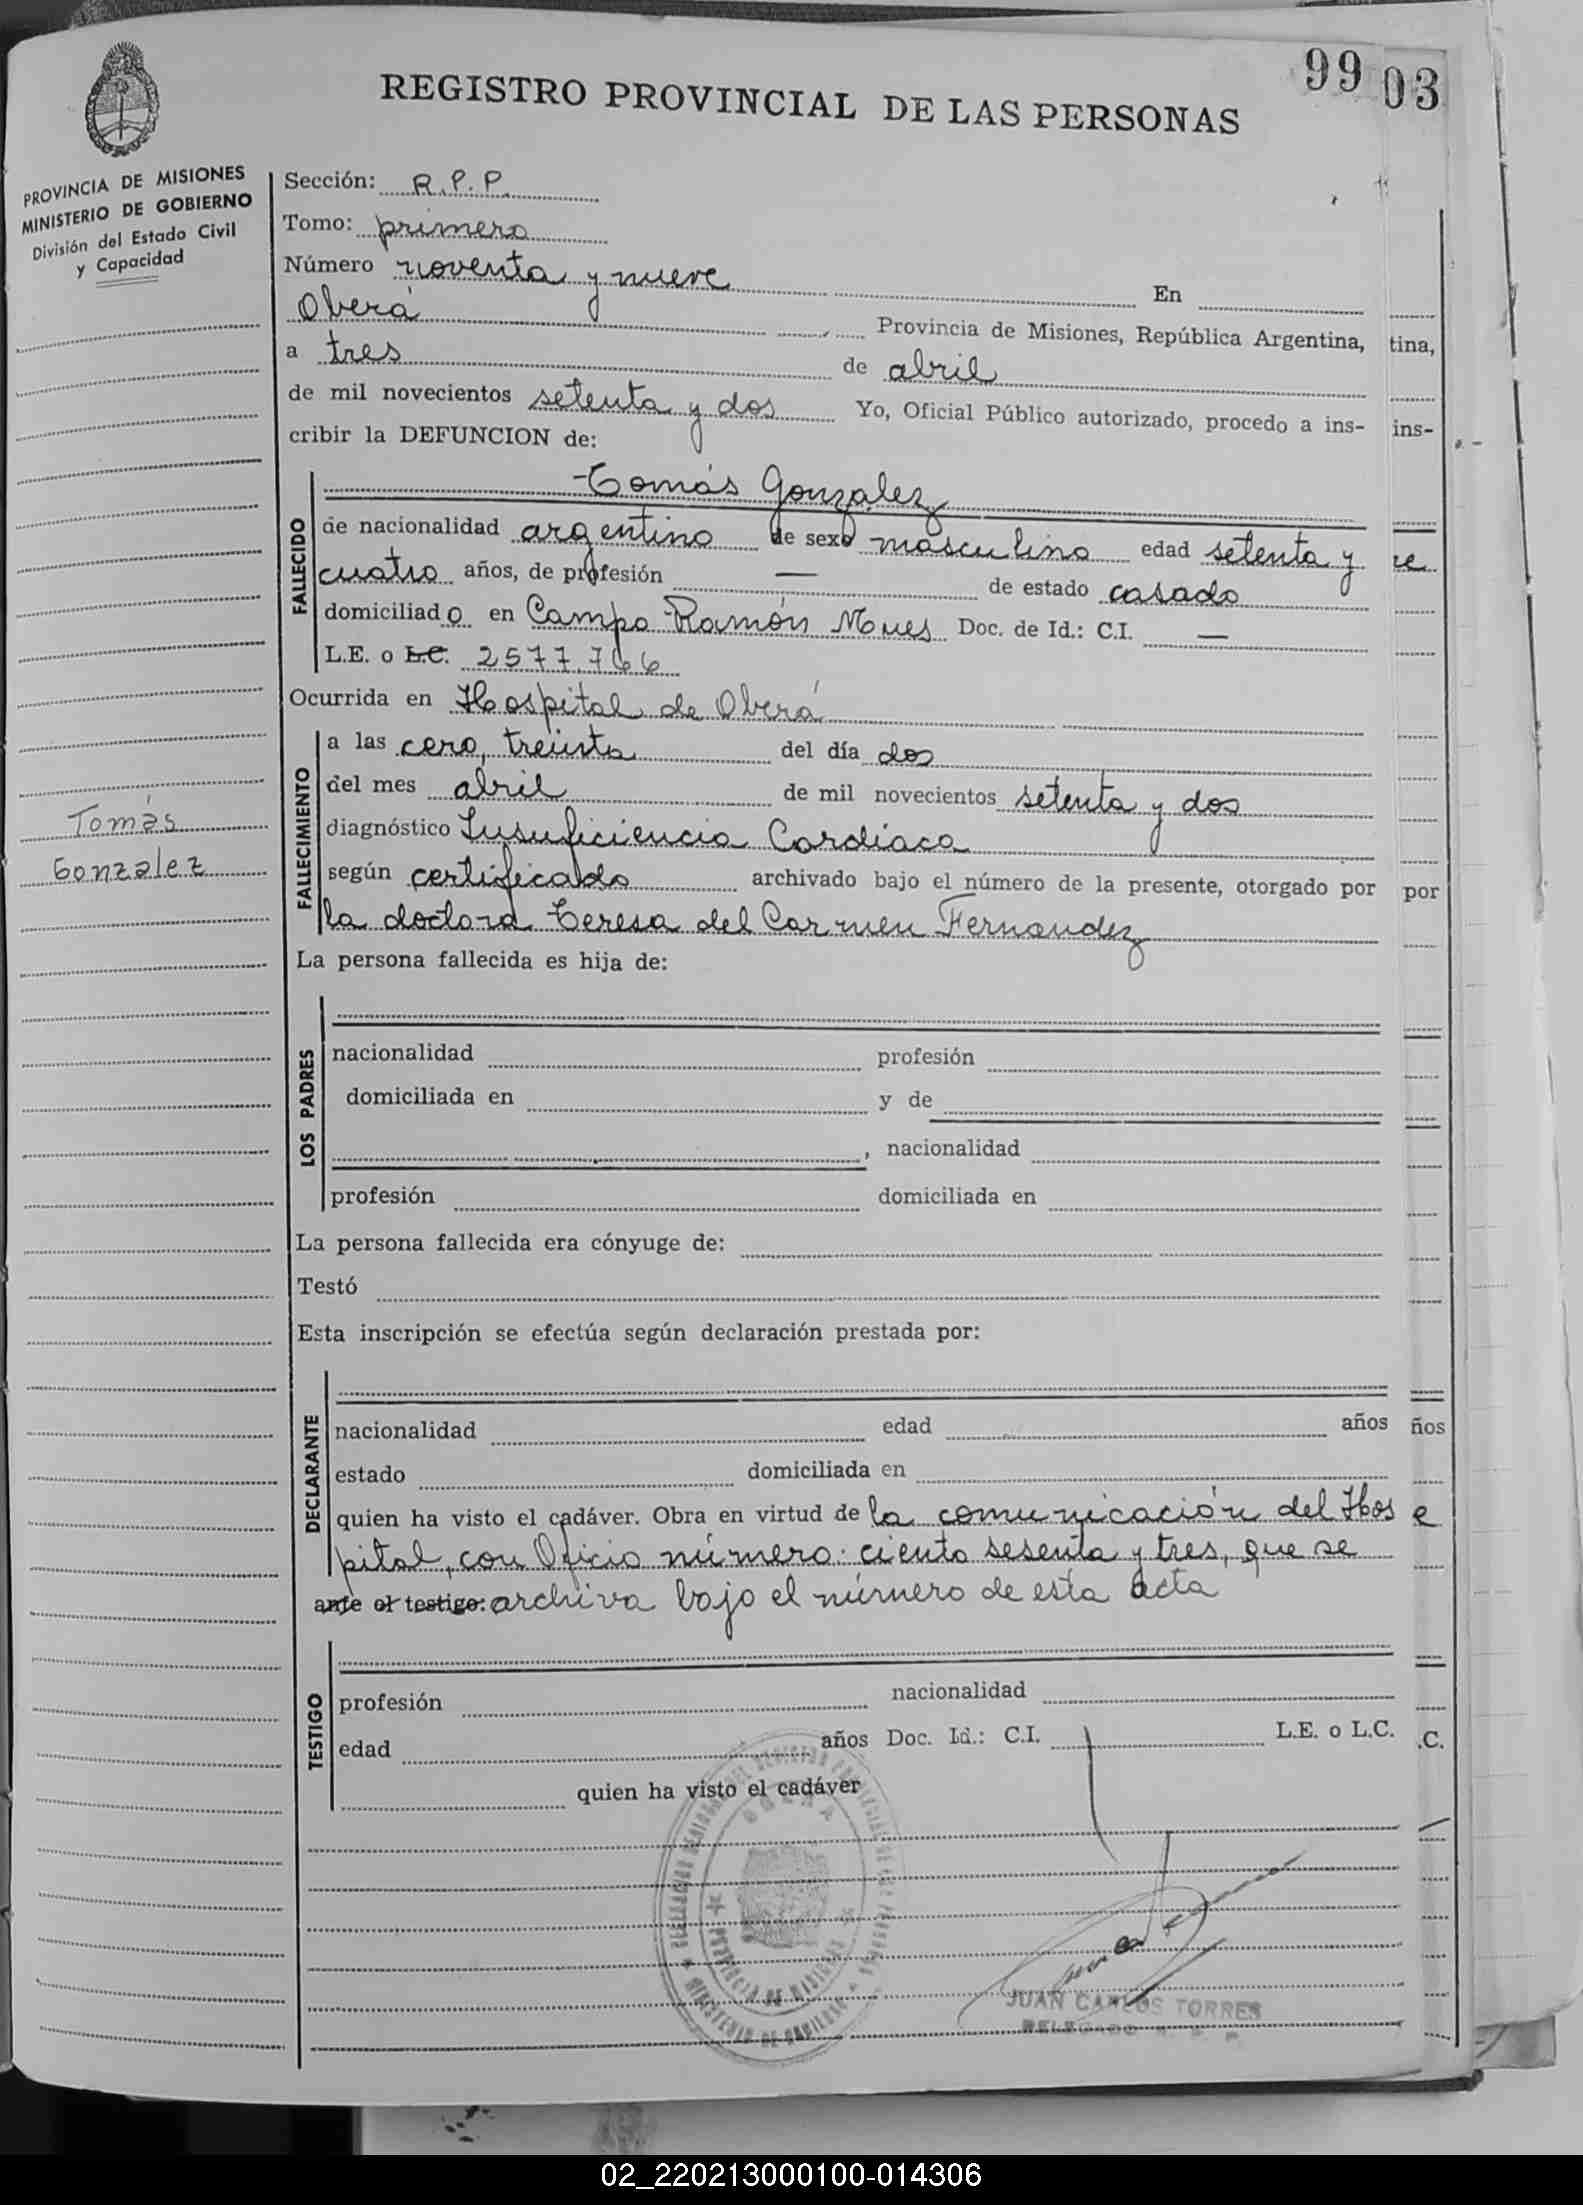 99 03
REGISTRO PROVINCIAL DE LAS PERSONAS
PROVINCIA DE MISIONES
MINISTERIO DE GOBIERNO
División del Estado Civil
y Capacidad
Sección: R.P.P.
Tomo: primero
Número noventa y nueve En
Oberá Provincia de Misiones, República Argentina, tina,
a tres de abril
de mil novecientos setenta y dos Yo, Oficial Público autorizado, procedo a ins- ins-
cribir la DEFUNCION de:
Tomás Gonzalez
FALLECIDO
de nacionalidad argentino de sexo masculino edad setenta y
cuatro años, de profesión — de estado casado
domiciliado en Campo Ramón Mues Doc. de Id.: C.I. —
L.E. o L.C. 2577.766
Ocurrida en Hospital de Oberá
FALLECIMIENTO
a las cero, treinta del día dos
del mes abril de mil novecientos setenta y dos
diagnóstico Insuficiencia Cardíaca
según certificado archivado bajo el número de la presente, otorgado por por
la doctora Teresa del Carmen Fernandez
Tomás
Gonzalez
La persona fallecida es hija de:
LOS PADRES
nacionalidad profesión
domiciliada en y de
, nacionalidad
profesión domiciliada en
La persona fallecida era cónyuge de:
Testó
Esta inscripción se efectúa según declaración prestada por:
DECLARANTE
nacionalidad edad años ños
estado domiciliada en
quien ha visto el cadáver. Obra en virtud de la comunicación del Hos
pital, con Oficio número: ciento sesenta y tres, que se
ante el testigo: archiva bajo el número de esta acta
TESTIGO
profesión nacionalidad
edad años Doc. Id.: C.I. L.E. o L.C. .C.
quien ha visto el cadáver
OBERA
PROVINCIA DE MISIONES
MINISTERIO DE GOBIERNO
JUAN CARLOS TORRES
DELEGADO R. P. P.
02_220213000100-014306